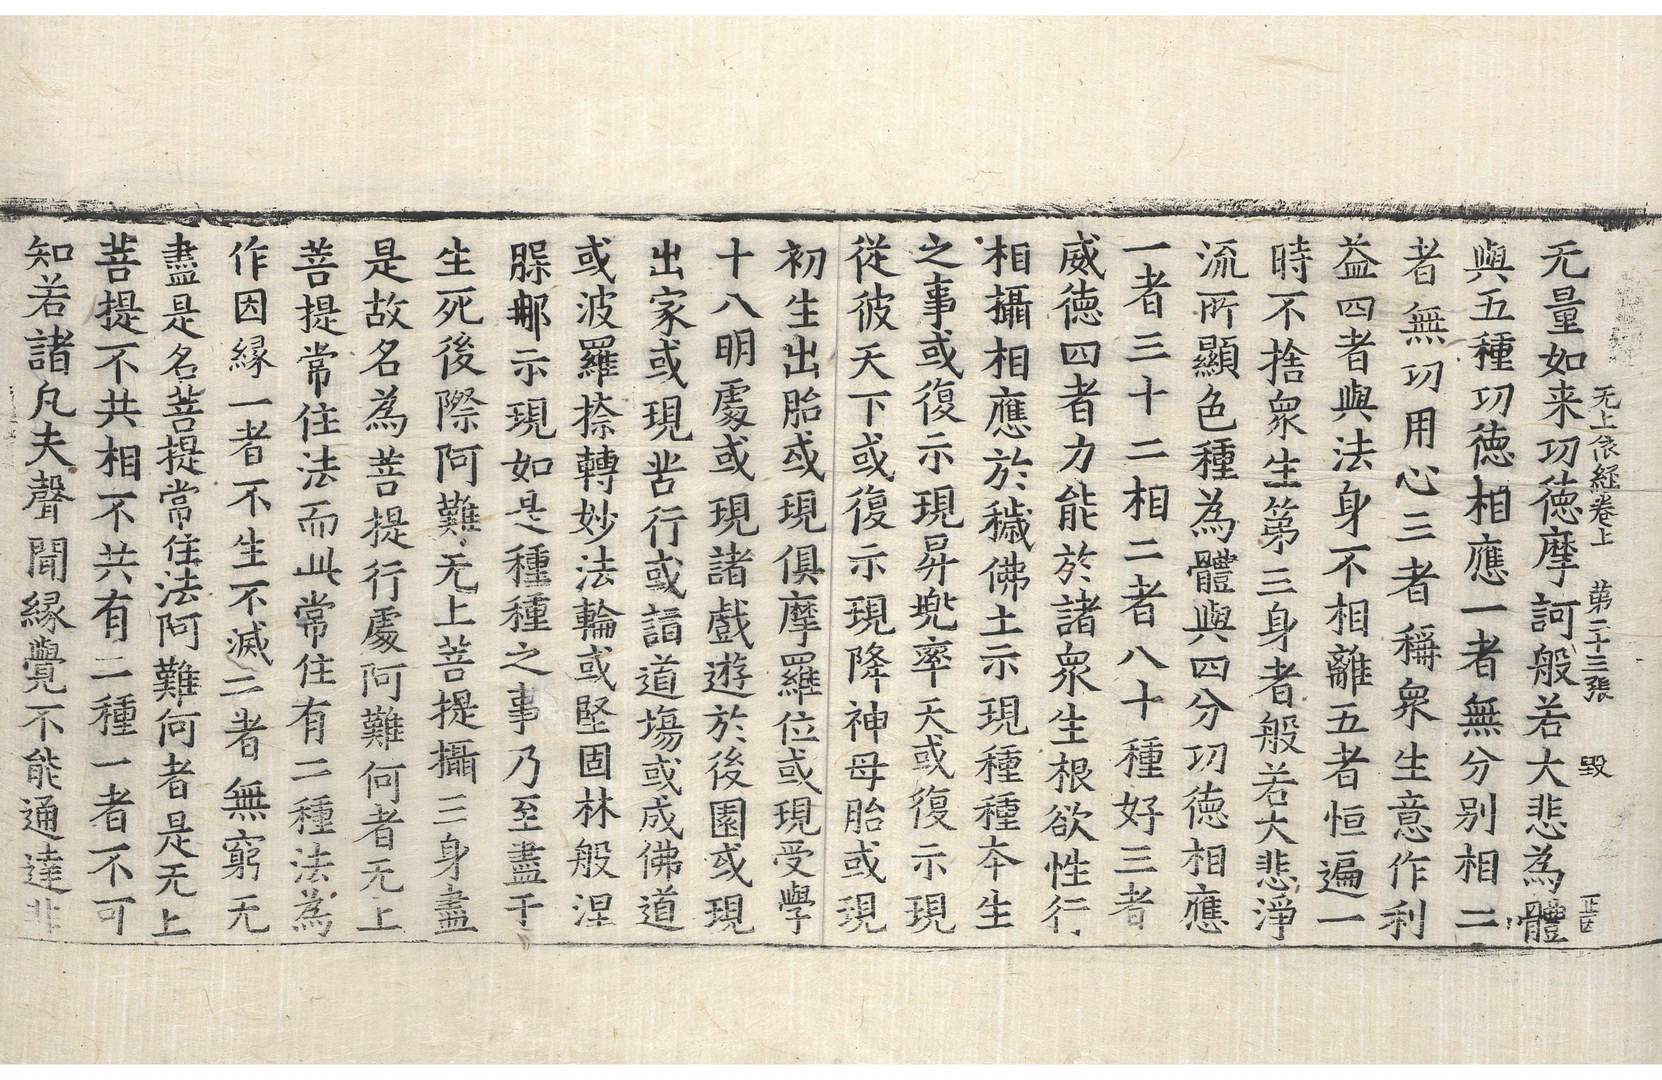 无上依經卷上 第二十三張 毀
无量如来功徳摩訶般若大悲為體
與五種功徳相應一者無分别相二
者無功用心三者稱衆生意作利
益四者與法身不相離五者恒遍一
時不捨衆生第三身者般若大悲淨
流所顯色種為體與四分功徳相應
一者三十二相二者八十種好三者
威徳四者力能於諸衆生根欲性行
相攝相應於穢佛土示現種種夲生
之事或復示現昇兠率天或復示現
從彼天下或復示現降神母胎或現
初生出胎或現俱摩羅位或現受學
十八明處或現諸戲遊於後園或現
出家或現苦行或詣道場或成佛道
或波羅捺轉妙法輪或堅固林般涅
腂那示現如是種種之事乃至盡于
生死後際阿難无上菩提攝三身盡
是故名為菩提行處阿難何者无上
菩提常住法而此常住有二種法為
作因緣一者不生不滅二者無窮无
盡是名菩提常住法阿難何者是无上
菩提不共相不共有二種一者不可
知若諸凡夫聲聞緣覺不能通達非